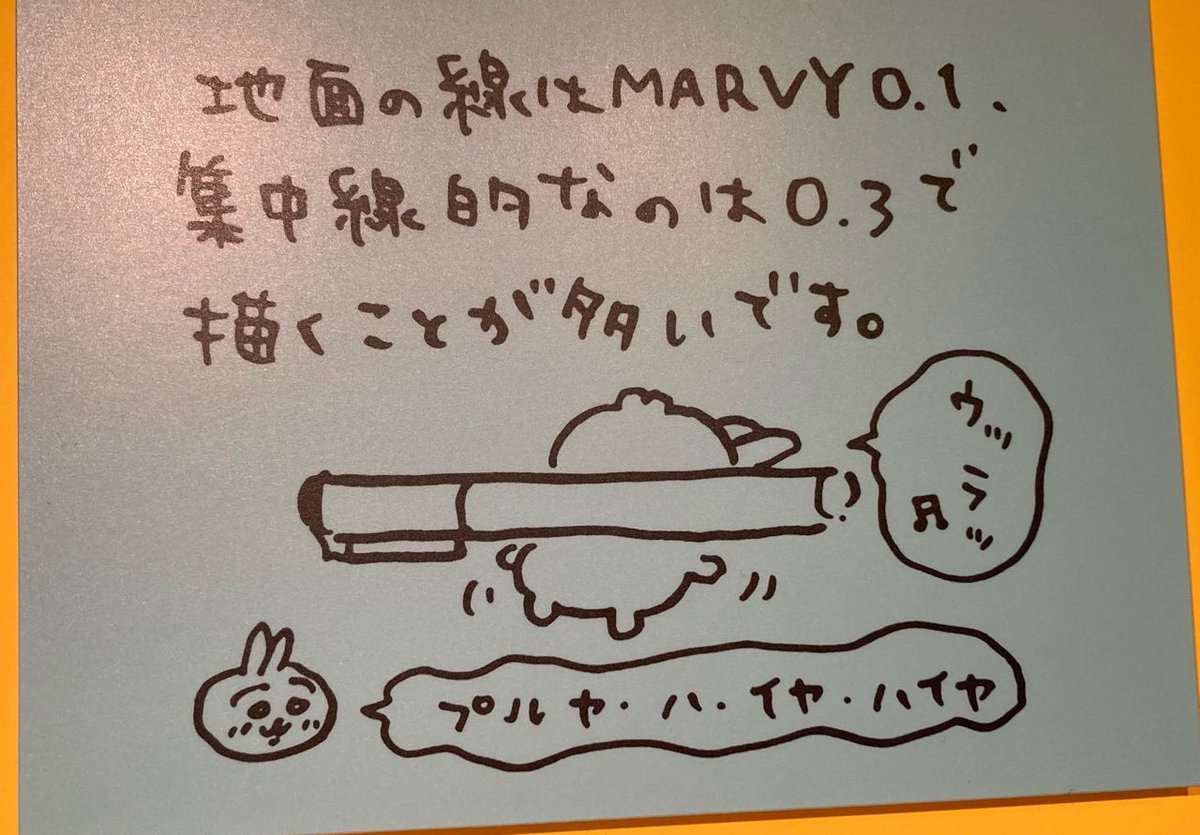 地面の線はMARVY0.1、
集中線的なのは0.3で
描くことが多いです。
ウッ
ラッ
プルヤ・ハ・イヤ・ハイヤ